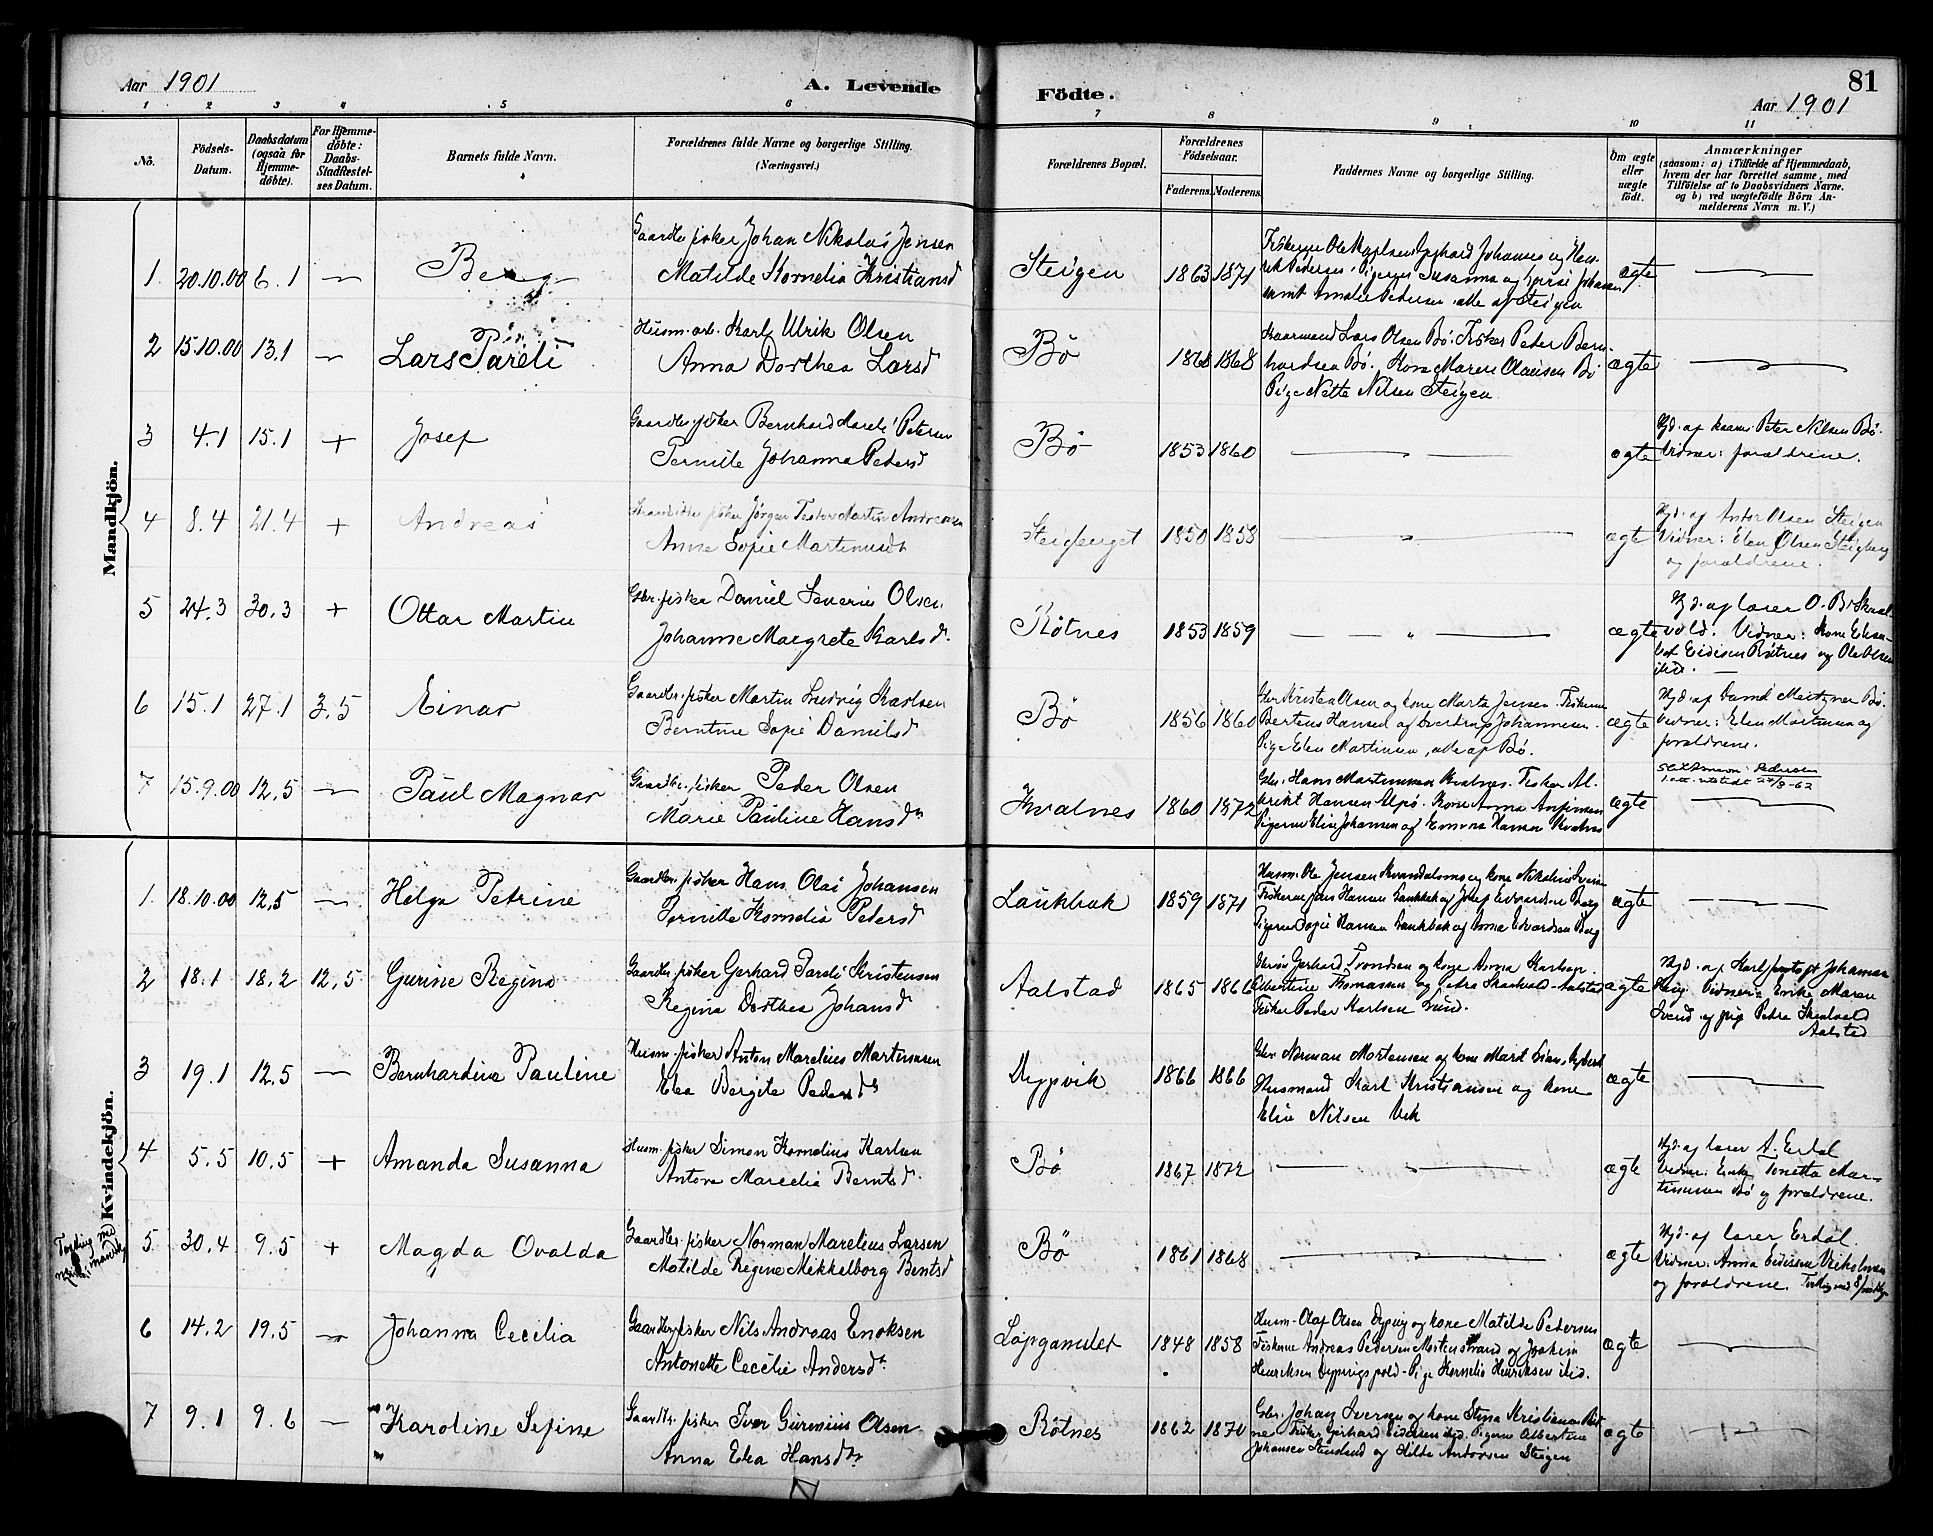 Aar 1901
A. Levende
Födte.
81
Aar 1901
1 2 3 4 5 6 7 8 9 10 11
No.
Födsels-Datum.
Daabsdatum (ogsaa for Hjemme-döbte).
For Hjemme-döbte: Daabs-Stadfæstelses Datum.
Barnets fulde Navn.
Forældrenes fulde Navne og borgerlige Stilling. (Næringsvei.)
Forældrenes Bopæl.
Forældrenes Födselsaar.
Faderens. Moderens.
Faddernes Navne og borgerlige Stilling.
Om ægte eller uægte födt.
Anmærkninger
(saasom: a) i Tilfælde af Hjemmedaab, hvem der har forrettet samme, med Tilföielse af to Daabsvidners Navne. og b) ved uægtefödte Börn Anmelderens Navn m. V.)
Mandkjön.
1. 20.10.00 6.1 — Berg
Gaardbr. fisker Johan Nikolai Jensen
Matilde Kornelia Kristiansd
Steigen 1863 1871
samt Amalie Pedersen alle af Steigen
ægte —
2 15.10.00 13.1 — Lars Pareli
Husm. arb. Karl Ulrik Olsen
Anna Dorthea Larsd
Bö 1868 1868
Kaarmand Lars Olsen Bö. Fisker Peter Bern-
hardsen Bö. Kone Maren Olausen Bö
Pige Nette Nilsen Steigen
ægte —
3 4.1 15.1 + Josef
Gaardbr. fisker Bernhard Pareli Petersen
Pernille Johanna Pedersd
Bö 1853 1860 — " —
ægte
Hjd. af kaarm. Peter Nilsen Bö.
Vidner: forældrene.
4 8.4 21.4 + Andreas
fisker Jörgen Martin Andreasen
Anne Sopie Martinusdt
Steigberget 1850 1858 — " —
ægte
Hjd. af Anton Olsen Steigen
Vidner: Elen Olsen Steigberg
og forældrene.
5 24.3 30.3 + Ottar Martin
Gbr. fisker Daniel Severin Olsen
Johanne Margrete Karlsd.
Rötnes 1853 1859 — " —
ægte
Hjd. af lærer O. B. Skaal-
vold. Vidner: Kone Elisa-
bet Eidisen Rötnes og Ole Olsen
ibid. —
6 15.1 27.1 3.5 Einar
Gaardbr. fisker Martin Ludvig Karlsen
Berntine Sopie Danielsd
Bö 1856 1860
Gbr. Kristen Olsen og kone Marta Jensen. Fiskerne
Berteus Hansen og Johannesen.
Pige Elen Martinsen, alle af Bö.
ægte
Hjd. af Daniel Meitzner Bö.
Vidner: Elen Martinsen og
forældrene.
7 15.9.00 12.5 — Paul Magnar
Gaardbr. fisker Peder Olsen
Marie Pauline Hansdtr
Kvalnes 1860 1872
Gbr. Hans Martinusen Kvalnes. Fisker Al-
brikt Hansen Alpö. Kone Anna Anfinsen
Pigerne Elise Johansen og Emma Hansen Kvalnes
ægte
Slektsnavn: Pedersen
1. att. utstedt 24/8-62
Kvindekjön.
1. 18.10.00 12.5 — Helga Petrine
Gaardbr. fisker Hans Olai Johansen
Pernille Kornelia Pedersd
Laukbak 1859 1871
Husm. Ole Jensen og kone
Fiskerne Jens Hansen Laukbak og Josef Edvardsen Berg
Pigerne Sopie Hansen Laukbak og Anna Edvardsen Berg
ægte —
2 18.1 18.2 12.5 Gurine Regine
Gaardbr. fisker Gerhard Pareli Kristensen
Regina Dorthea Johansd
Aalstad 1865 1866
Gerhard Trondsen og kone Anna Karlsen.
Albertine Thomassen og Petra Skaalvold Aalstad
Fisker Peder Karlsen Grund.
ægte
Hjd. af Karl Johansen
Vidner: Enke Maren
og pige Petra Skaalvold
Aalstad
3 19.1 12.5 — Bernhardine Pauline
Husm. fisker Anton Marelius Martinusen
Elea Bergite Pedersdtr
Dyppvik 1866 1866
Gbr. Norman Mortensen og kone
Husmand Karl Kristiansen og kone
Elise Nilsen Vik
ægte —
4 5.5 10.5 + Amanda Susanna
Husm. fisker Simon Kornelius Karlsen
Antone Marcelia Berntsd.
Bö 1867 1872 — " —
ægte
Hjd. af lærer A. Erdal
Vidner: Enke Tonetta Mar-
tinusen Bö og forældrene.
Tvilling med
5 30.4 9.5 + Magda Ovalda
Gaardbr. fisker Norman Marelius Larsen
Matilde Regine Mekkelborg Bentsd
Bö 1861 1868 — " —
ægte
Hjd. af lærer Erdal.
Vidner: Anna Eidissen
og forældrene. Tvilling med
6 14.2 19.5 — Johanna Cecilia
Gaardbr. fisker Nils Andreas Enoksen
Antonette Cecilie Andersdt.
Löpgamlet 1848 1858
Husm. Olaf Olsen Dyping og kone Matilde Pedersen
Fiskerne Andreas Pedersen Mortenstrand og Joakim
Henriksen Dypingspold - Pige Kornelia Henriksen ibid.
ægte —
7 9.1 9.6 — Karoline Sefine
Gaardbr. fisker Iver Gurinius Olsen
Anna Elea Hansdtr
Rötnes 1862 1870
Gbr. Johan Iversen og kone Stina Kristiansen Röt-
nes Fisker Gerhard Eidissen ibid. Pigerne Albertine
Johansen og Hilda Andersen Steigen
ægte —